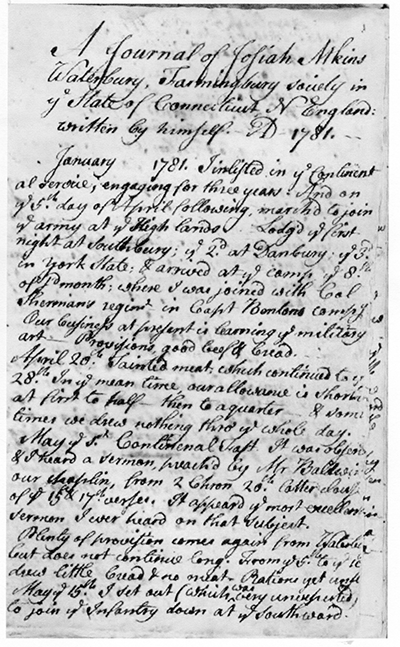 A Journal of Josiah Atkins
Waterbury, Farmingbury society in
ye State of Connecticut N England:
written by himself. AD 1781.
January 1781. I inlisted in ye continent
al service, engaging for three years. And on
ye 5th day of April following, march'd to join
ye army at ye High lands Lodg'd ye first
night at Southbury; ye 2d at Danbury; ye 3d
in York State; & arrived at ye camp ye 8th
of month; where I was joined with Col
Shermans regimt in Capt Bentons compy
Our business at present is learning ye military
art Provisions, good beef & bread.
April 20th Tainted meat; which continued to ye
28th In ye mean time our allowance is short
at first to half then to a quarter & some
times we drew nothing thro' ye whole day.
May ye 3d Continental Fast It was observ
& I heard a sermon, preach'd by Mr Baldwin
our chaplin, from 2 Chron 20th latter
of ye 15th 17th verses. It appear'd ye most excellent
sermon I ever heard on that subject.
Plenty of provision comes again from
but does not continue long. From ye 5th to ye
drew little bread & no meat Rations yet
May ye 15th I set out (which was very unexpected)
to join ye Infantry down at ye southward.